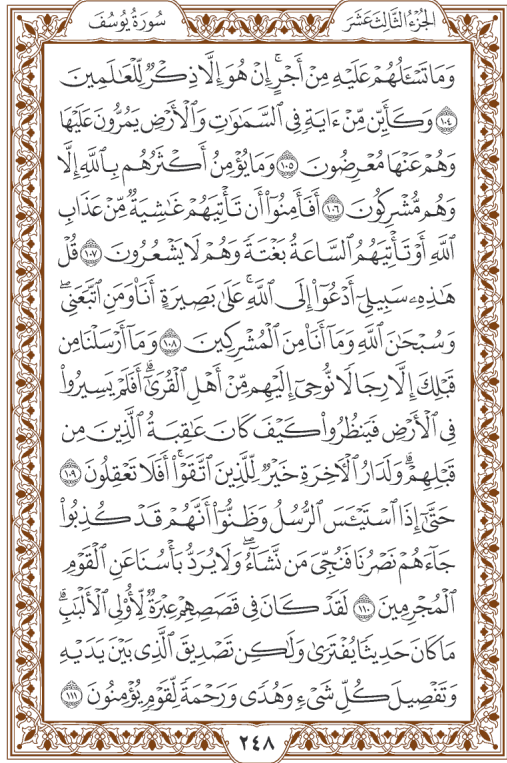 الجزء الثالث عشر
سورة يوسف
وَمَا تَسْـَٔلُهُمْ عَلَيْهِ مِنْ أَجْرٍۚ إِنْ هُوَ إِلَّا ذِكْرٌ لِّلْعَٰلَمِينَ
١٠٤ وَكَأَيِّن مِّنْ ءَايَةٍ فِى ٱلسَّمَٰوَٰتِ وَٱلْأَرْضِ يَمُرُّونَ عَلَيْهَا
وَهُمْ عَنْهَا مُعْرِضُونَ ١٠٥ وَمَا يُؤْمِنُ أَكْثَرُهُم بِٱللَّهِ إِلَّا
وَهُم مُّشْرِكُونَ ١٠٦ أَفَأَمِنُوٓا۟ أَن تَأْتِيَهُمْ غَٰشِيَةٌ مِّنْ عَذَابِ
ٱللَّهِ أَوْ تَأْتِيَهُمُ ٱلسَّاعَةُ بَغْتَةً وَهُمْ لَا يَشْعُرُونَ ١٠٧ قُلْ
هَٰذِهِۦ سَبِيلِىٓ أَدْعُوٓا۟ إِلَى ٱللَّهِۚ عَلَىٰ بَصِيرَةٍ أَنَا۠ وَمَنِ ٱتَّبَعَنِىۖ
وَسُبْحَٰنَ ٱللَّهِ وَمَآ أَنَا۠ مِنَ ٱلْمُشْرِكِينَ ١٠٨ وَمَآ أَرْسَلْنَا مِن
قَبْلِكَ إِلَّا رِجَالًا نُّوحِىٓ إِلَيْهِم مِّنْ أَهْلِ ٱلْقُرَىٰٓۗ أَفَلَمْ يَسِيرُوا۟
فِى ٱلْأَرْضِ فَيَنظُرُوا۟ كَيْفَ كَانَ عَٰقِبَةُ ٱلَّذِينَ مِن
قَبْلِهِمْۗ وَلَدَارُ ٱلْءَاخِرَةِ خَيْرٌ لِّلَّذِينَ ٱتَّقَوْا۟ۗ أَفَلَا تَعْقِلُونَ ١٠٩
حَتَّىٰٓ إِذَا ٱسْتَيْـَٔسَ ٱلرُّسُلُ وَظَنُّوٓا۟ أَنَّهُمْ قَدْ كُذِبُوا۟
جَآءَهُمْ نَصْرُنَا فَنُجِّىَ مَن نَّشَآءُۖ وَلَا يُرَدُّ بَأْسُنَا عَنِ ٱلْقَوْمِ
ٱلْمُجْرِمِينَ ١١٠ لَقَدْ كَانَ فِى قَصَصِهِمْ عِبْرَةٌ لِّأُو۟لِى ٱلْأَلْبَٰبِۗ
مَا كَانَ حَدِيثًا يُفْتَرَىٰ وَلَٰكِن تَصْدِيقَ ٱلَّذِى بَيْنَ يَدَيْهِ
وَتَفْصِيلَ كُلِّ شَىْءٍ وَهُدًى وَرَحْمَةً لِّقَوْمٍ يُؤْمِنُونَ ١١١
٢٤٨